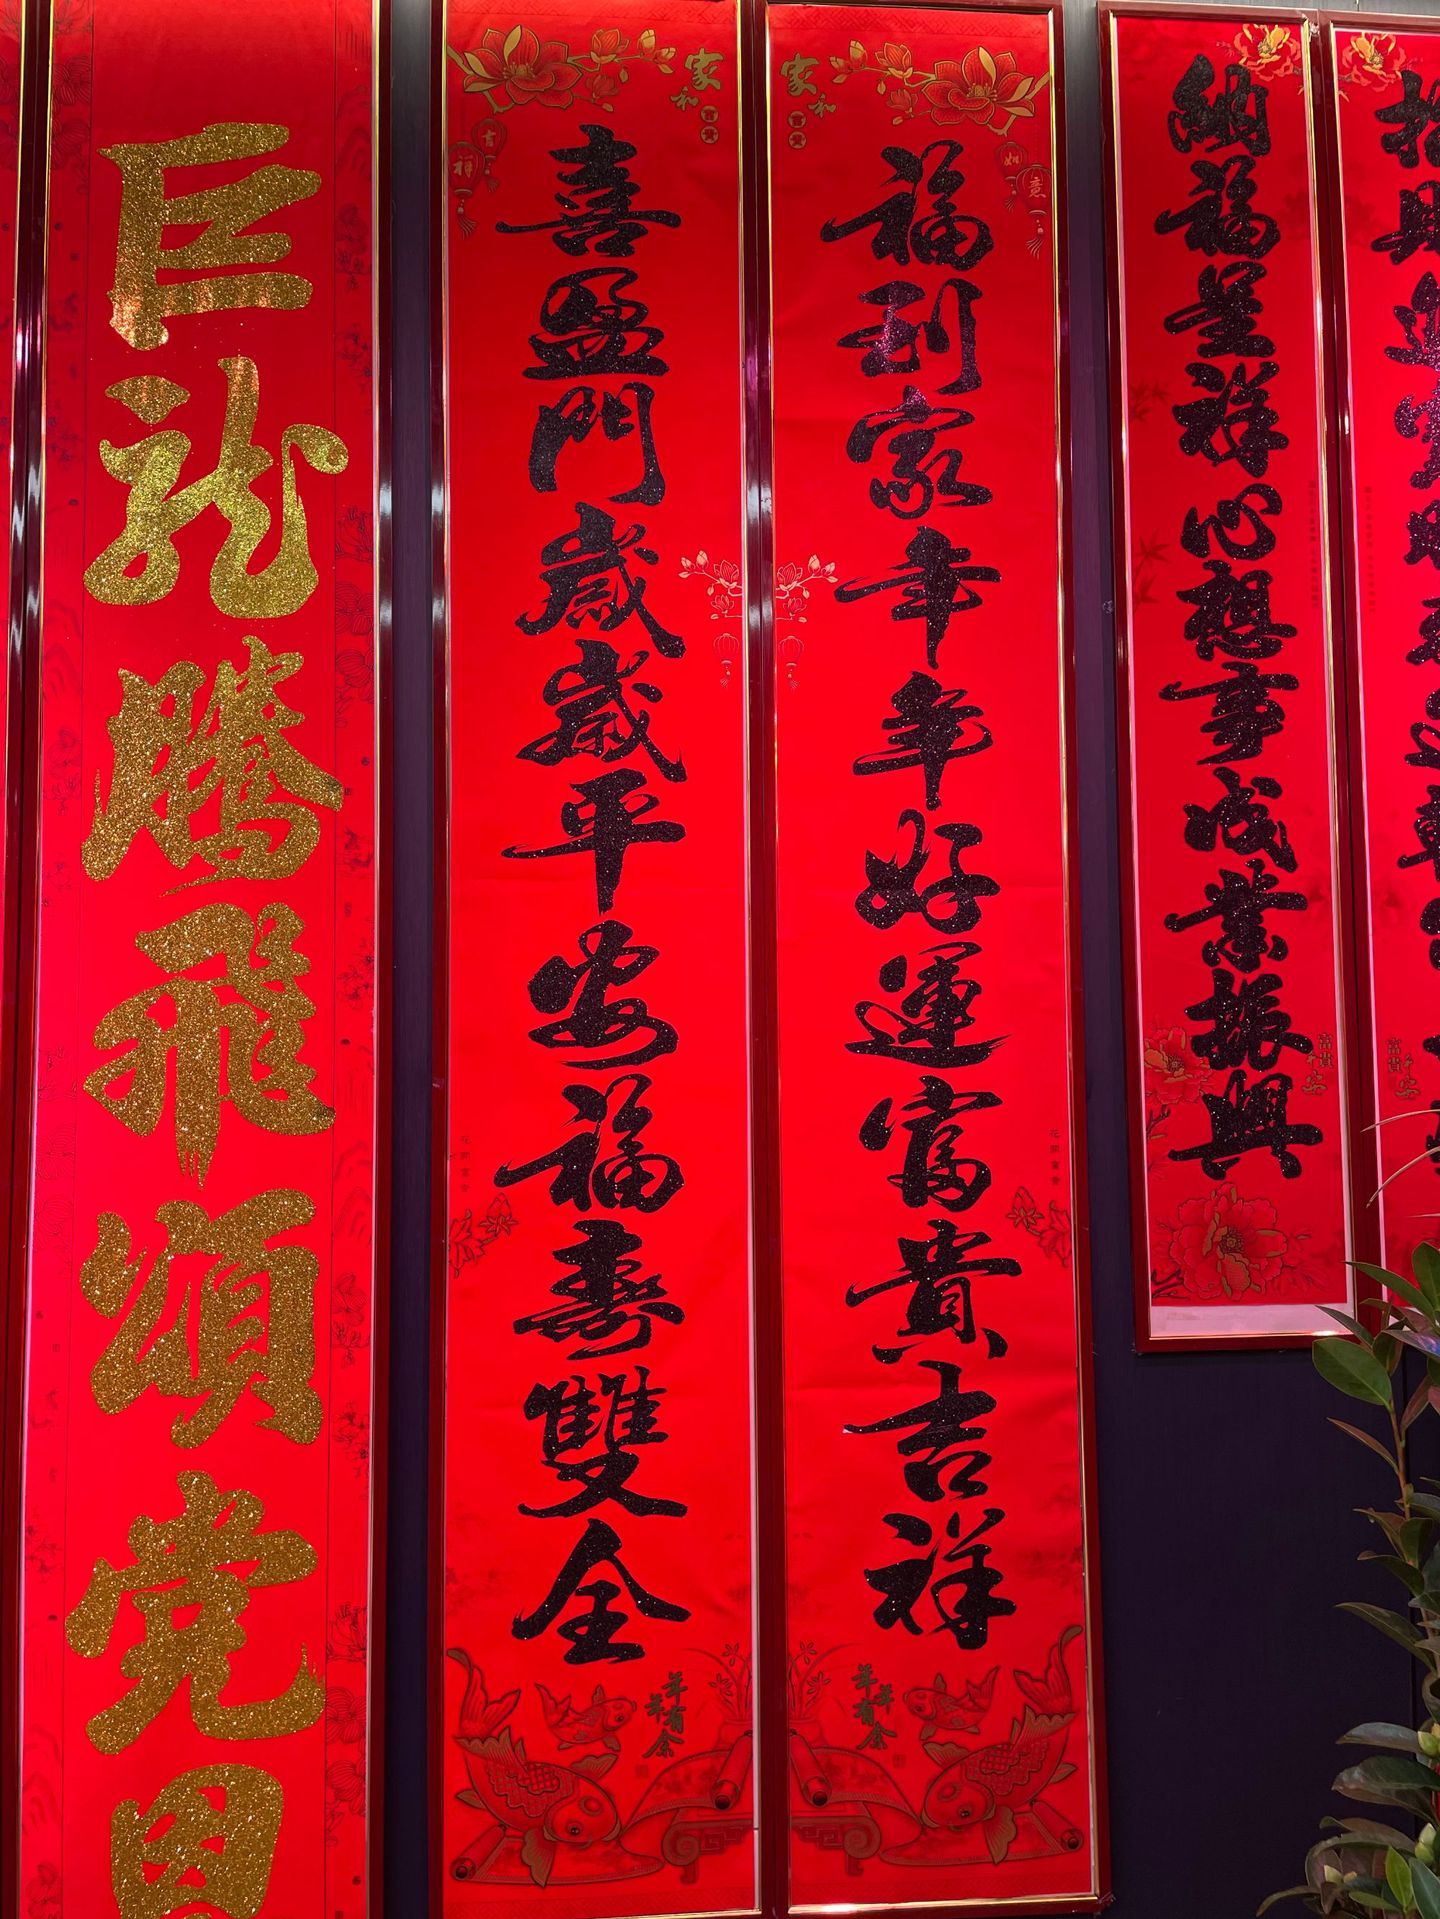 納福呈祥心想事成業振興
富貴平安
家和富貴
如意
福到家年年好運富貴吉祥
花開富貴
年年有余
家和富貴
吉祥
喜盈門歲歲平安福壽雙全
花開富貴
年年有余
巨龍騰飛頌党